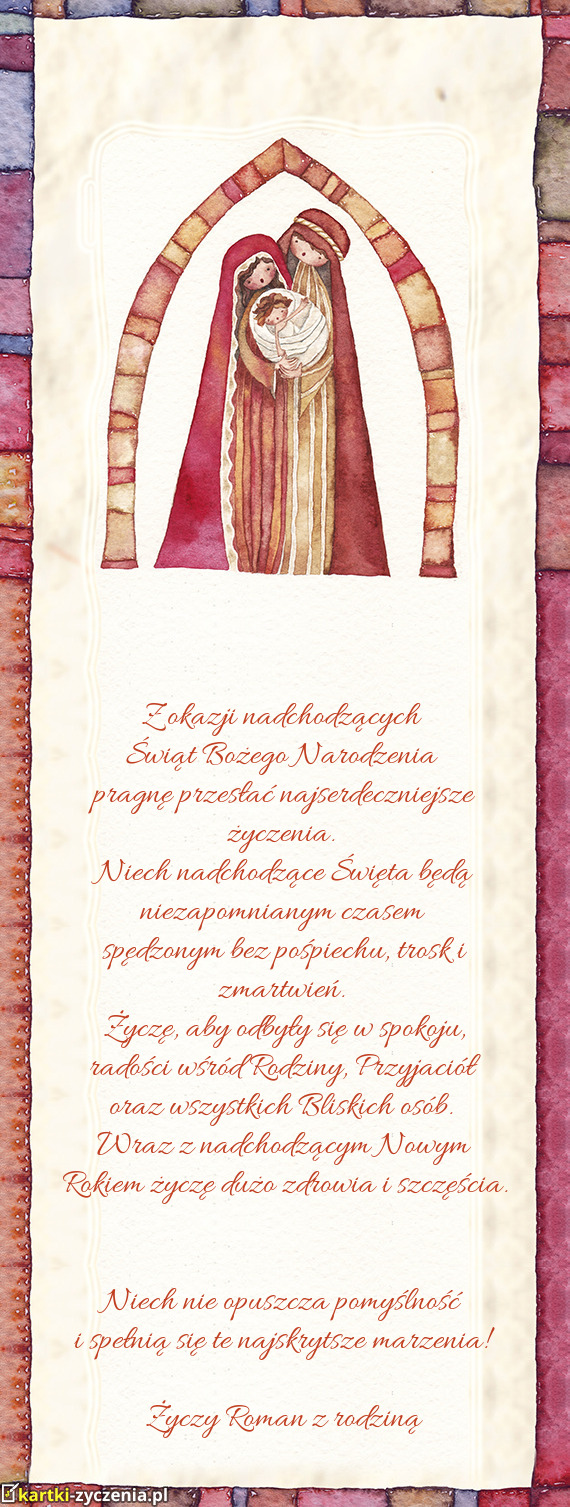 Z okazji nadchodzących
Świąt Bożego Narodzenia
pragnę przesłać najserdeczniejsze
życzenia.
Niech nadchodzące Święta będą
niezapomnianym czasem
spędzonym bez pośpiechu, trosk i
zmartwień.
Życzę, aby odbyły się w spokoju,
radości wśród Rodziny, Przyjaciół
oraz wszystkich Bliskich osób.
Wraz z nadchodzącym Nowym
Rokiem życzę dużo zdrowia i szczęścia.
Niech nie opuszcza pomyślność
i spełnią się te najskrytsze marzenia!
Życzy Roman z rodziną
kartki-zyczenia.pl